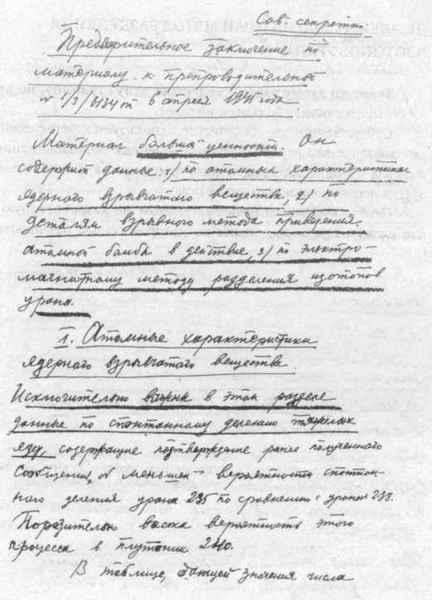 Сов. секретно
Предварительное заключение по
материалу к препроводительной
№ 1/3/6134 от 6 апреля 1945 года
Материал большой ценности. Он
содержит данные: 1) по атомным характеристикам
ядерного взрывчатого вещества, 2) по
деталям взрывного метода приведения
атомной бомбы в действие, 3) по электро-
магнитному методу разделения изотопов
урана.
1. Атомные характеристики
ядерного взрывчатого вещества.
Исключительно важны в этом разделе
данные по спонтанному делению тяжелых
ядер, содержащие подтверждение ранее полученного
сообщения о меньшей вероятности спонтан-
ного деления урана 235 по сравнению с ураном 238.
Поразительно высока вероятность этого
процесса в плутонии 240.
В таблице, дающей значения числа